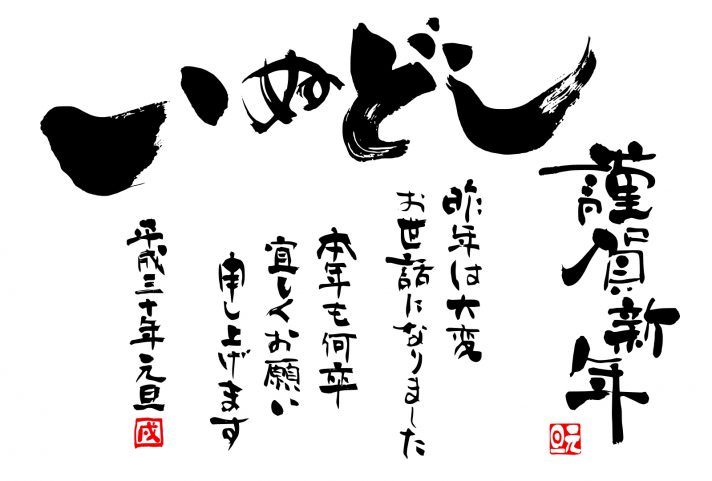 いぬどし
謹賀新年
元旦
昨年は大変
お世話になりました
本年も何卒
宜しくお願い
申し上げます
平成三十年元旦
戌